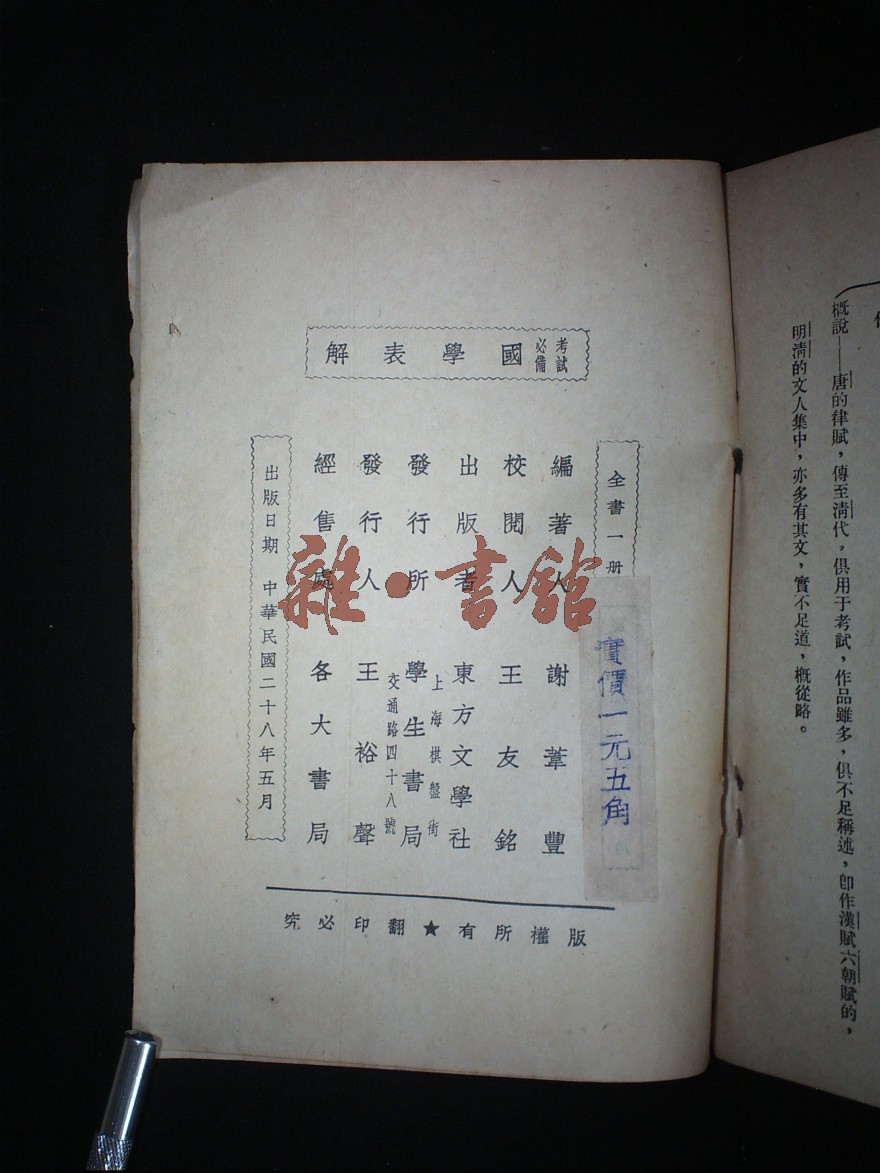 概說——唐的律賦，傳至清代，俱用于考試，作品雖多，俱不足稱述，卽作漢賦六朝賦的，
明清的文人集中，亦多有其文，實不足道，概從略。
考試必備 國學表解
全書一册
實價一元五角
編著人 謝葦豐
校閱人 王友銘
出版者 東方文學社
發行所 學生書局
上海棋盤街
交通路四十八號
發行人 王裕聲
經售處 各大書局
出版日期 中華民國二十八年五月
版權所有★翻印必究
雜·書館